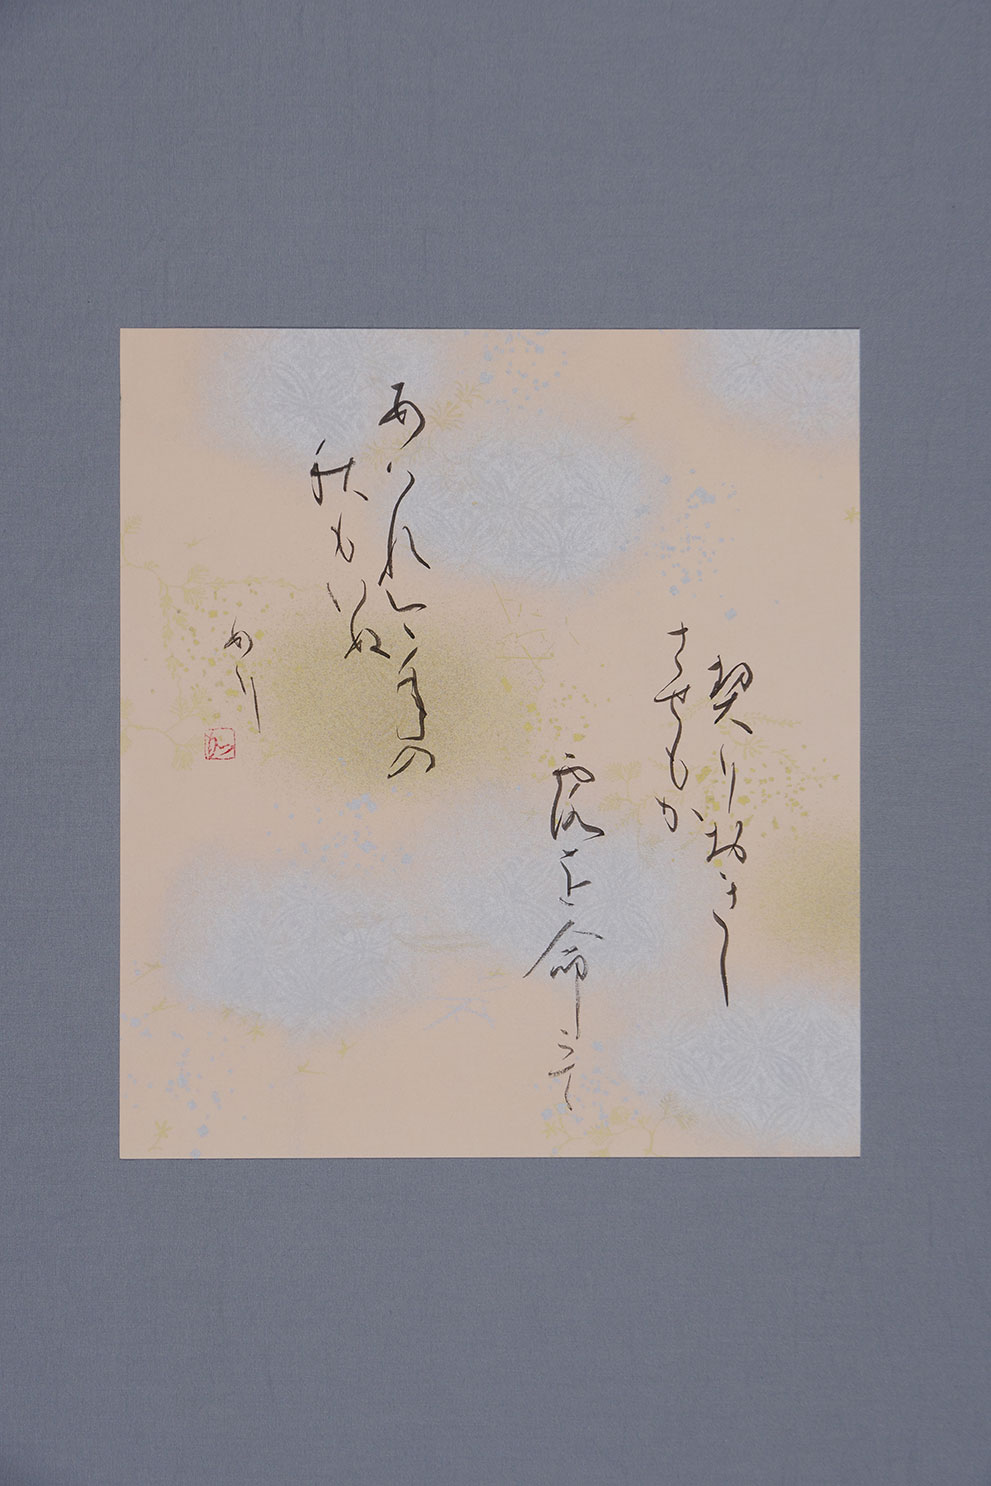 契りおきし
させもか
露を命にて
あはれ今年の
秋もいぬ
めり